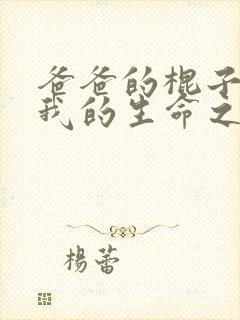 爸爸的棍子
我的生命之
楊蕾